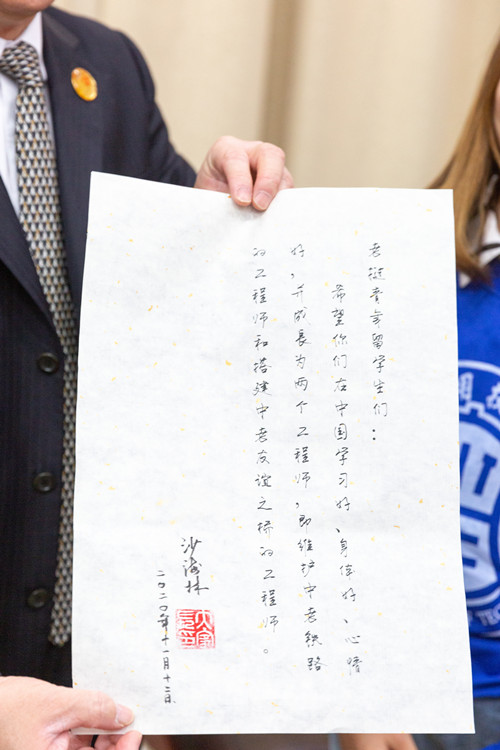 老挝青年留学生们：
希望你们在中国学习好、身体好、心情
好，并成长为两个工程师，即维护中老铁路
的工程师和搭建中老友谊之桥的工程师。
沙海林
二〇二〇年十一月十二日